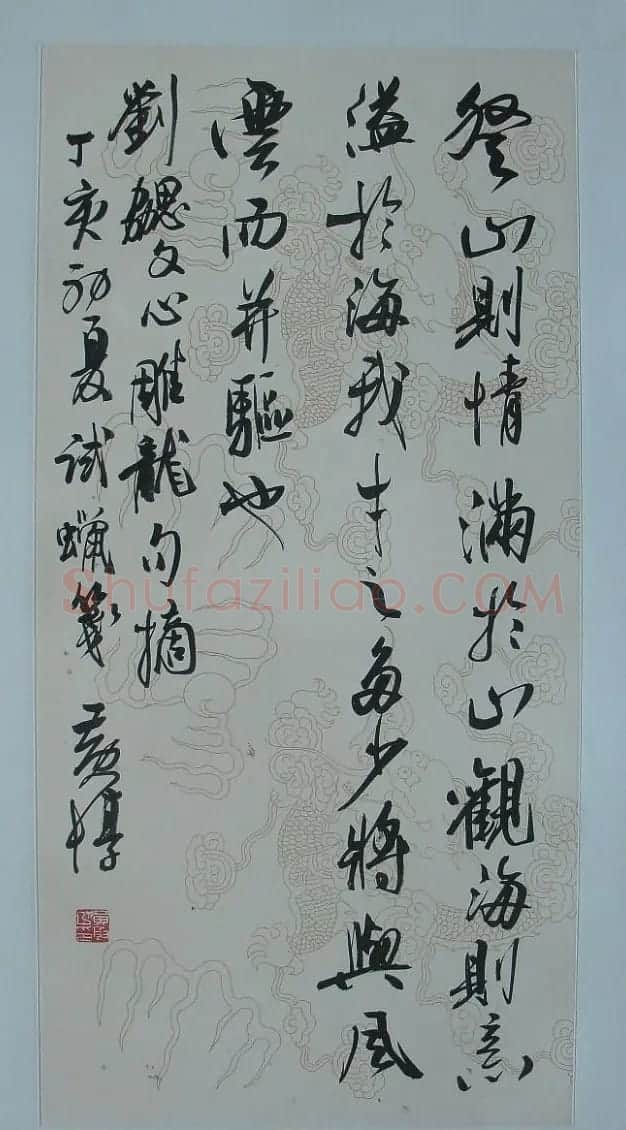 登山則情滿於山觀海則意
溢於海我才之多少將與風
雲而并驅也
劉勰文心雕龍句摘
丁亥初夏試蠟箋 黃惇
Shufaziliao.COM